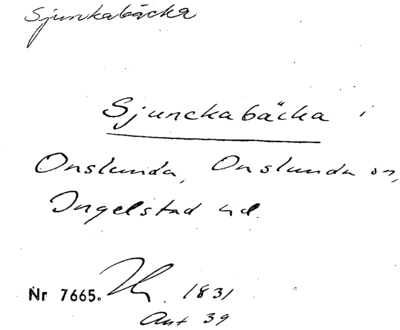 Sjunkabäcka
Sjunckabäcka i
Onslunda, Onslunda sn,
Ingelstad hd.
Nr 7665. 1831
Ant 39